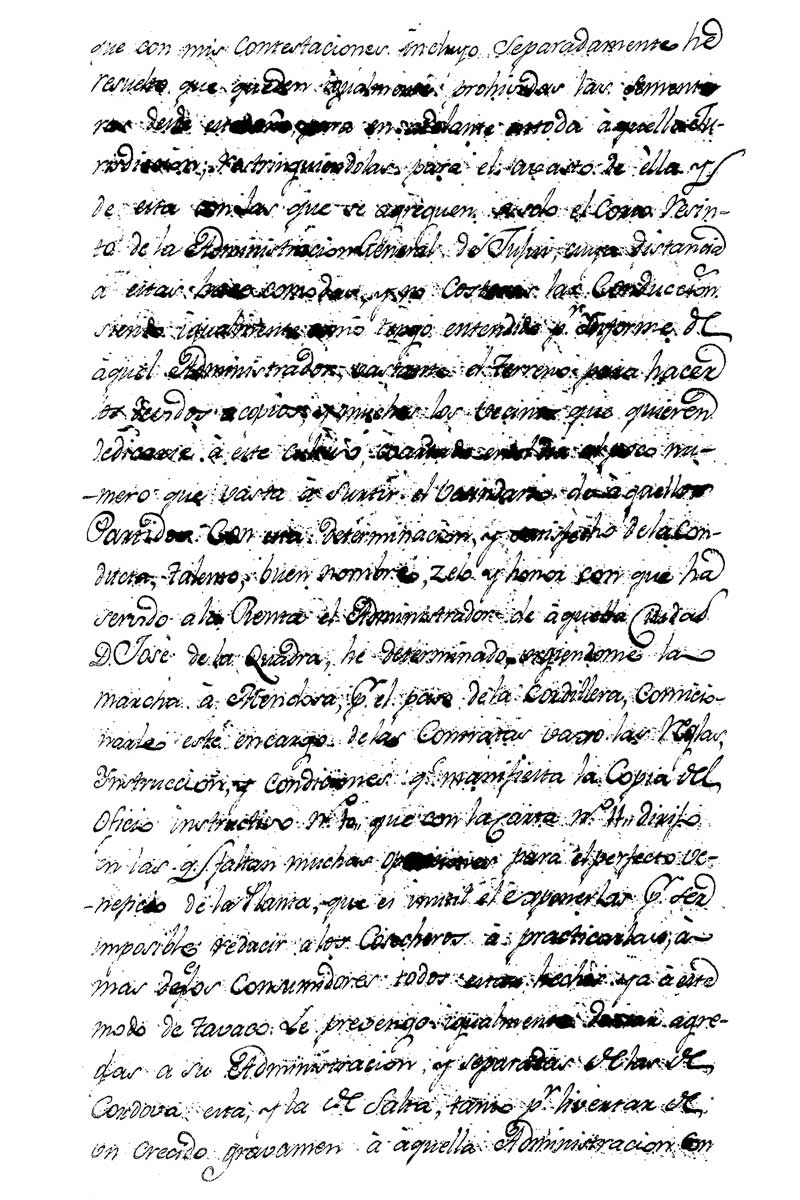 que con mis Contestaciones incluyo Separadamente he
resuelto que queden igualmente prohividas las Semente
ras desde este en adelante en toda àquella Ju-
risdiccion, restringuiendolas para el avasto de èlla y
de esta con las que se agreguen a solo el Corto Resin-
to de la Administracion General de Jujui, cuya distancia
a estas hace comodas, y no Costosas las Conduccion.
siendo igualmente como tengo entendido pr Informe del
àquel Administrador, vastante el terreno para hacer
los acopios, y muchos los vecinos que quieren
dedicarse à este cultivo, nu-
-mero que vasta à surtir el vecindario de àquellos
Partidos. Con esta determinacion, y satisfecho de la Con-
ducta, talento, buen nombre, zelo y honor con que ha
servido a la Renta el Administrador de àquella Ciudad
D. Josè de la Quadra, he determinado, la
marcha à Mendosa, pr el paso de la Cordillera, Comicio-
narle este encargo de las Contratas vaxo las Reglas,
Instruccion, y Condiciones qe manifiesta la Copia del
Oficio instructivo nro que con la Carta nro 11 dirijo
en las qe faltan muchas para el perfecto ve-
-neficio de la Planta, que es inutil el exponerlas pr ser
imposible redacir a los Cosecheros à practicarlas, à
mas de que los Consumidores todos estan hechos ya à este
modo de tavaco. Le prevengo igualmente agre-
das a su Administracion, y separadas de las de
Cordova, esta, y la de Salta, tanto pr livertar de
un crecido gravamen à àquella Administracion con